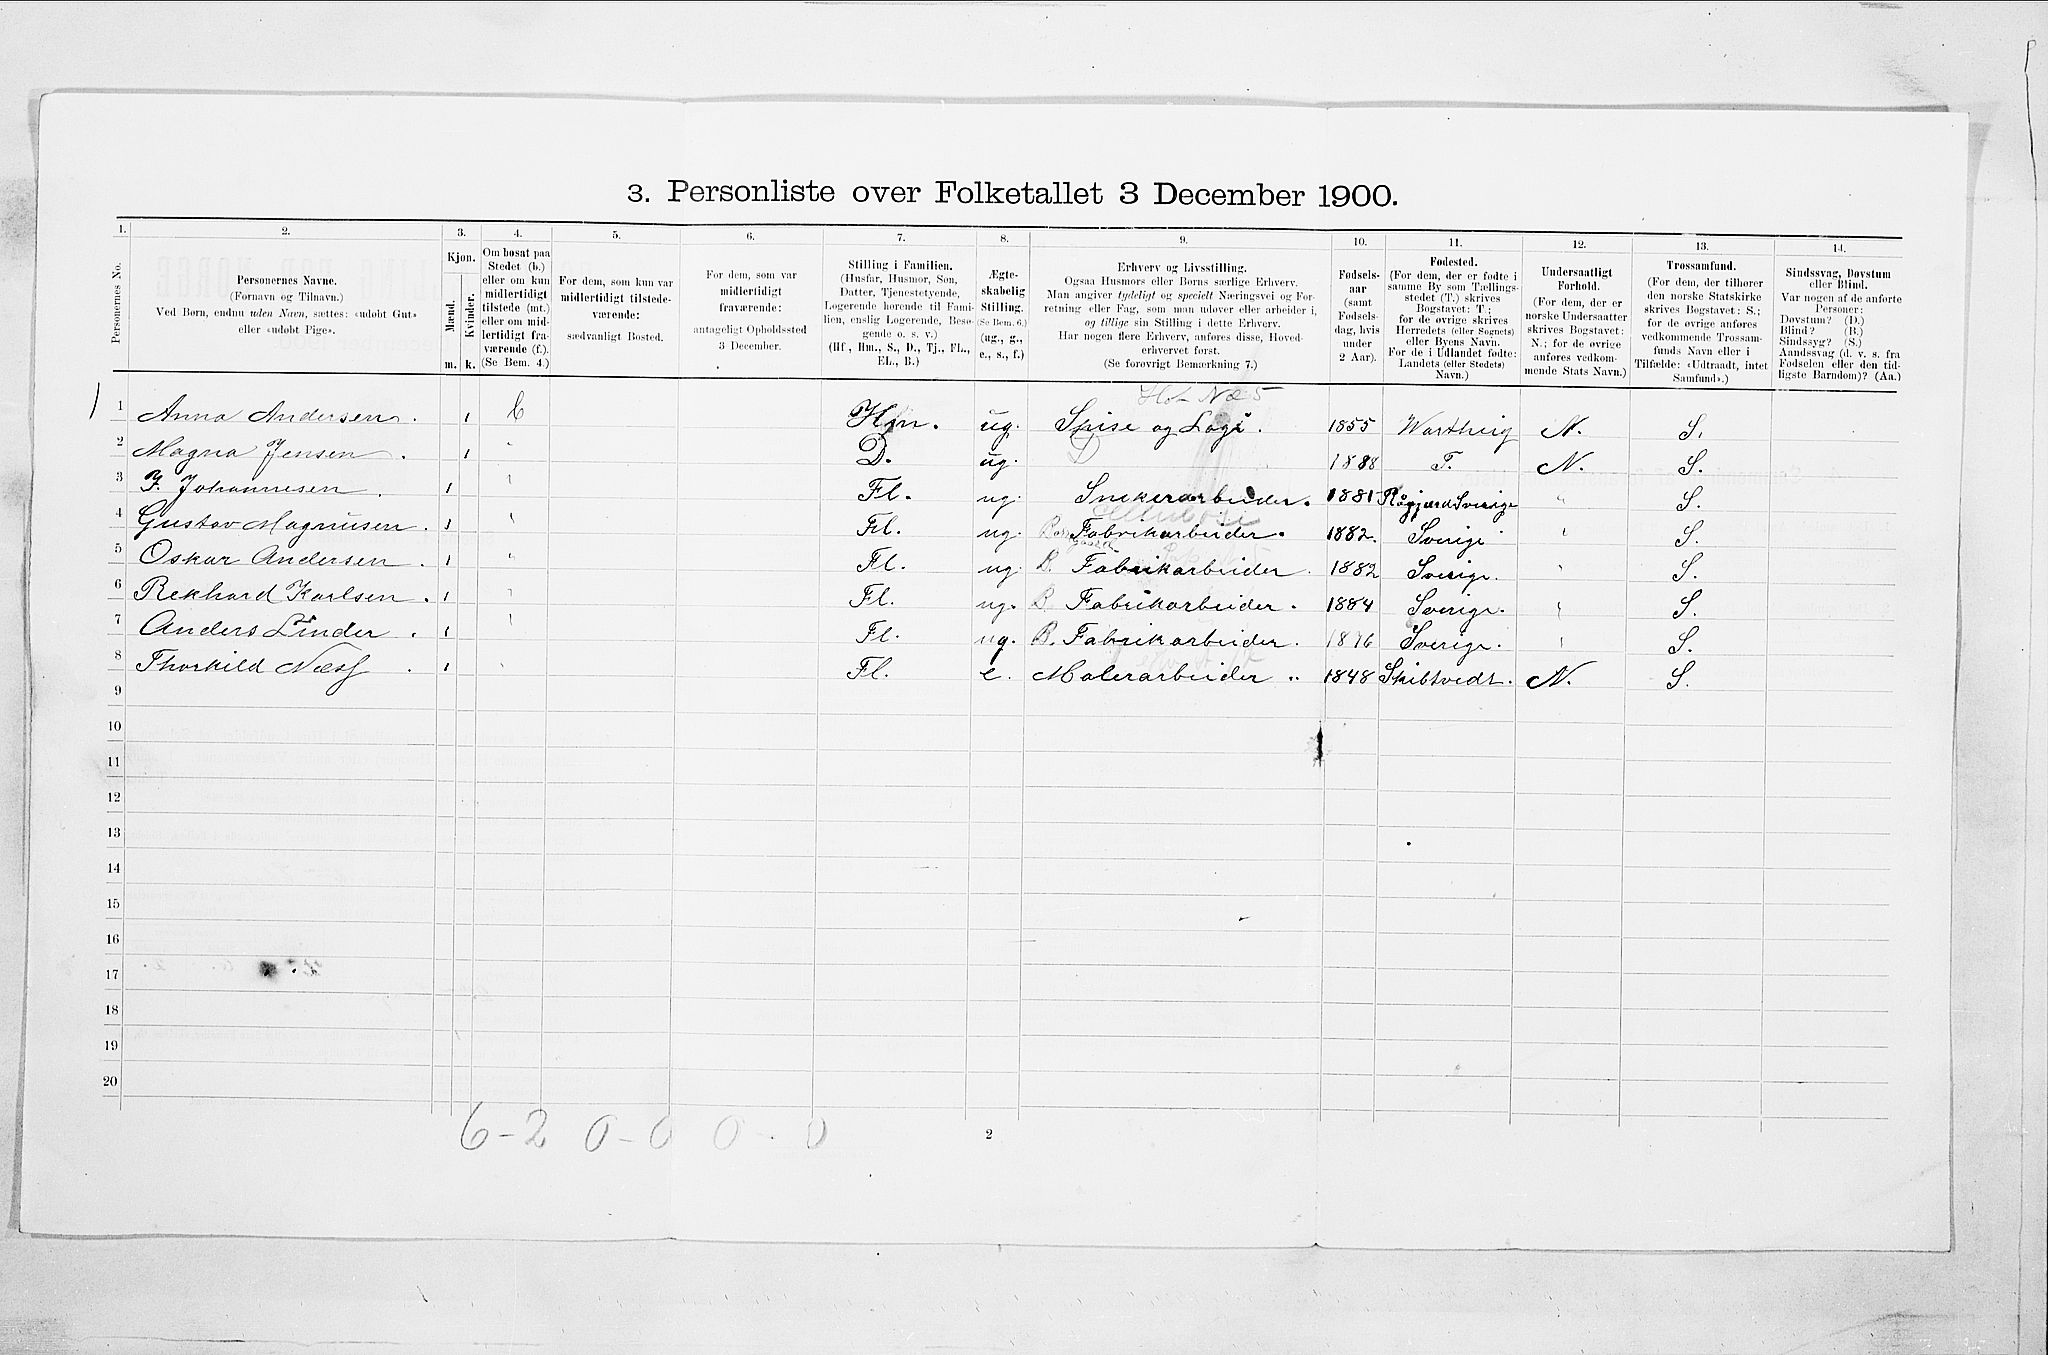 3. Personliste over Folketallet 3 December 1900.
1. 2. 3. 4. 5. 6. 7. 8. 9. 10. 11. 12. 13. 14.
Personernes No.
Personernes Navne.
(Fornavn og Tilnavn.)
Ved Børn, endnu uden Navn, sættes: «udøbt Gut»
eller «udøbt Pige».
Kjøn.
Mænd.
Kvinder.
m. k.
Om bosat paa
Stedet (b.)
eller om kun
midlertidigt
tilstede (mt.)
eller om mid-
lertidigt fra-
værende (f.).
(Se Bem. 4.)
For dem, som kun var
midlertidigt tilstede-
værende:
sædvanligt Bosted.
For dem, som var
midlertidigt
fraværende:
antageligt Opholdssted
3 December.
Stilling i Familien.
(Husfar, Husmor, Søn,
Datter, Tjenestetyende,
Logerende hørende til Fami-
lien, enslig Logerende, Besø-
gende o. s. v.)
(Hf., Hm., S., D., Tj., FL.,
EL., B.)
Ægte-
skabelig
Stilling.
(Se Bem. 6.)
(ug., g.,
e., s., f.)
Erhverv og Livsstilling.
Ogsaa Husmors eller Børns særlige Erhverv.
Man angiver tydeligt og specielt Næringsvei og For-
retning eller Fag, som man udøver eller arbeider i,
og tillige sin Stilling i dette Erhverv.
Har nogen flere Erhverv, anføres disse, Hoved-
erhvervet først.
(Se forøvrigt Bemærkning 7.)
Fødsels-
aar
(samt
Fødsels-
dag, hvis
under
2 Aar).
Fødested.
(For dem, der er fødte i
samme By som Tællings-
stedet (T.) skrives
Bogstavet: T;
for de øvrige skrives
Herredets (eller Sognets)
eller Byens Navn.
For de i Udlandet fødte:
Landets (eller Stedets)
Navn.)
Undersaatligt
Forhold.
(For dem, der er
norske Undersaatter
skrives Bogstavet:
N.; for de øvrige
anføres vedkom-
mende Stats Navn.)
Trossamfund.
(For dem, der tilhører
den norske Statskirke
skrives Bogstavet: S.;
for de øvrige anføres
vedkommende Trossam-
funds Navn eller i
Tilfælde: «Udtraadt, intet
Samfund».)
Sindssvag, Døvstum
eller Blind.
Var nogen af de anførte
Personer:
Døvstum? (D.)
Blind? (B.)
Sindssyg? (S.)
Aandssvag (d. v. s. fra
Fødselen eller den tid-
ligste Barndom)? (Aa.)
1 Anna Andersen. 1 b Hm. ug. Spise og Logi. 1855 N. S.
2 Magna Jensen. 1 " D. ug. D 1888 T. N. S.
3 J. Johannesen. 1 " Fl. ug. Snekerarbeider. 1881 Sverige " S.
4 Gustav Magnusen. 1 " Fl. ug. Fabrikarbeider. 1882. Sverige " S.
5 Oskar Andersen. 1 " Fl. ug. B. Fabrikarbeider. 1882 Sverige. " S.
6 Rekhard Karlsen. 1 " Fl. ug. B. Fabrikarbeider. 1884 Sverige. " S.
7 Anders Linder. 1 " Fl. ug. B. Fabrikarbeider. 1876 Sverige. " S.
8 Thorkild Næss. 1 " Fl. e. Malerarbeider " 1848 Skibtvedt. N. S.
9
10
11
12
13
14
15
16
17
18
19
20
6-2 0-0 0-0
2